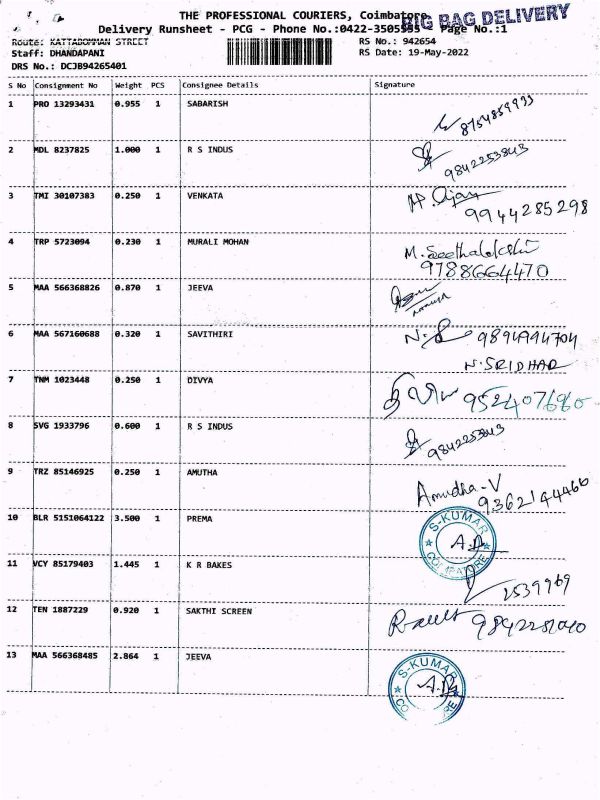 THE PROFESSIONAL COURIERS, Coimbatore
BIG BAG DELIVERY
Delivery Runsheet - PCG - Phone No.:0422-3505555 Page No.:1
Route: KATTABOMMAN STREET RS No.: 942654
Staff: DHANDAPANI RS Date: 19-May-2022
DRS No.: DCJB94265401
S No Consignment No Weight PCS Consignee Details Signature
1 PRO 13293431 0.955 1 SABARISH
8754859933
2 MDL 8237825 1.000 1 R S INDUS
9842253843
3 TMI 30107383 0.250 1 VENKATA
9944285298
4 TRP 5723094 0.230 1 MURALI MOHAN
9788664470
5 MAA 566368826 0.870 1 JEEVA
6 MAA 567160688 0.320 1 SAVITHIRI
9894994704
N.SRIDHAR
7 TNM 1023448 0.250 1 DIVYA
9524076960
8 SVG 1933796 0.600 1 R S INDUS
9842253843
9 TRZ 85146925 0.250 1 AMUTHA Amudha-V
9362144466
10 BLR 5151064122 3.500 1 PREMA S-KUMAR COIMBATORE
11 VCY 85179403 1.445 1 K R BAKES
2539969
12 TEN 1887229 0.920 1 SAKTHI SCREEN
13 MAA 566368485 2.864 1 JEEVA S-KUMAR